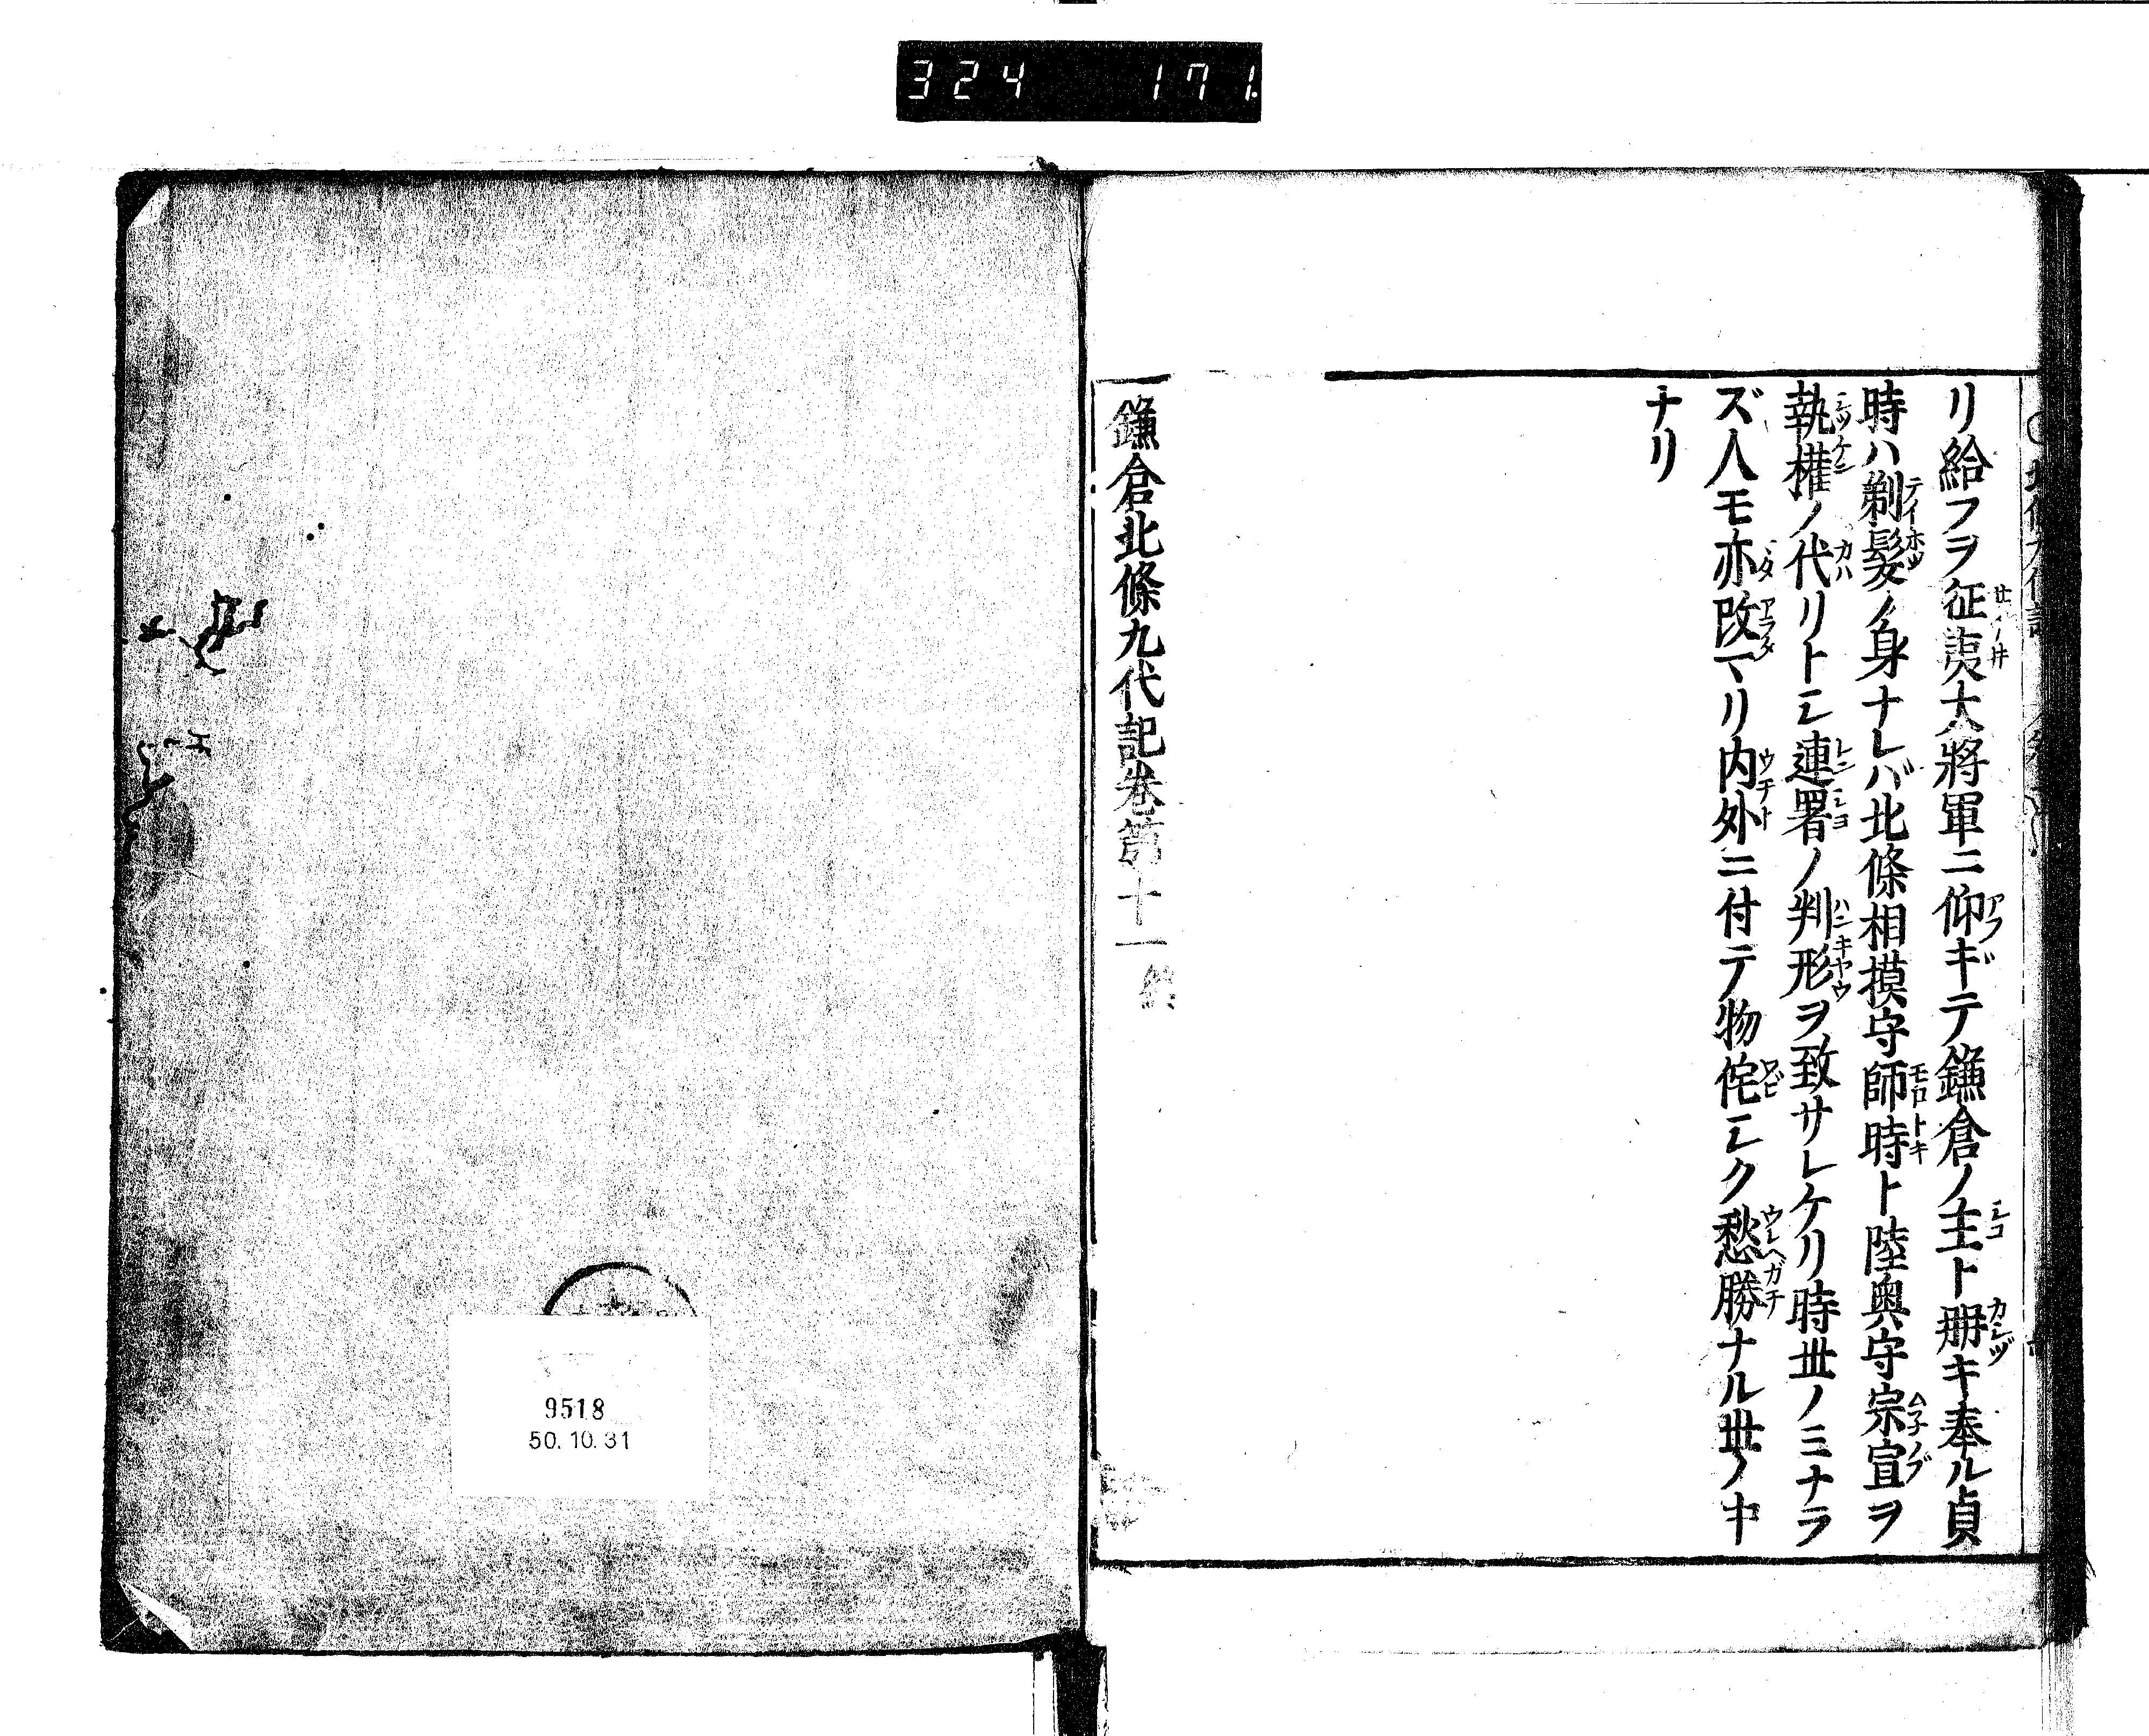 324 171.
リ給フヲ征夷大將軍ニ仰ギテ鎌倉ノ主ト册キ奉ル貞
時ハ剃髮ノ身ナレバ北條相摸守師時ト陸奥守宗宣ヲ
執權ノ代リトシ連署ノ判形ヲ致サレケリ時世ノミナラ
ズ人モ亦改マリ内外ニ付テ物侘シク愁勝ナル世ノ中
ナリ
鎌倉北條九代記卷第十一終
9518
50.10.31